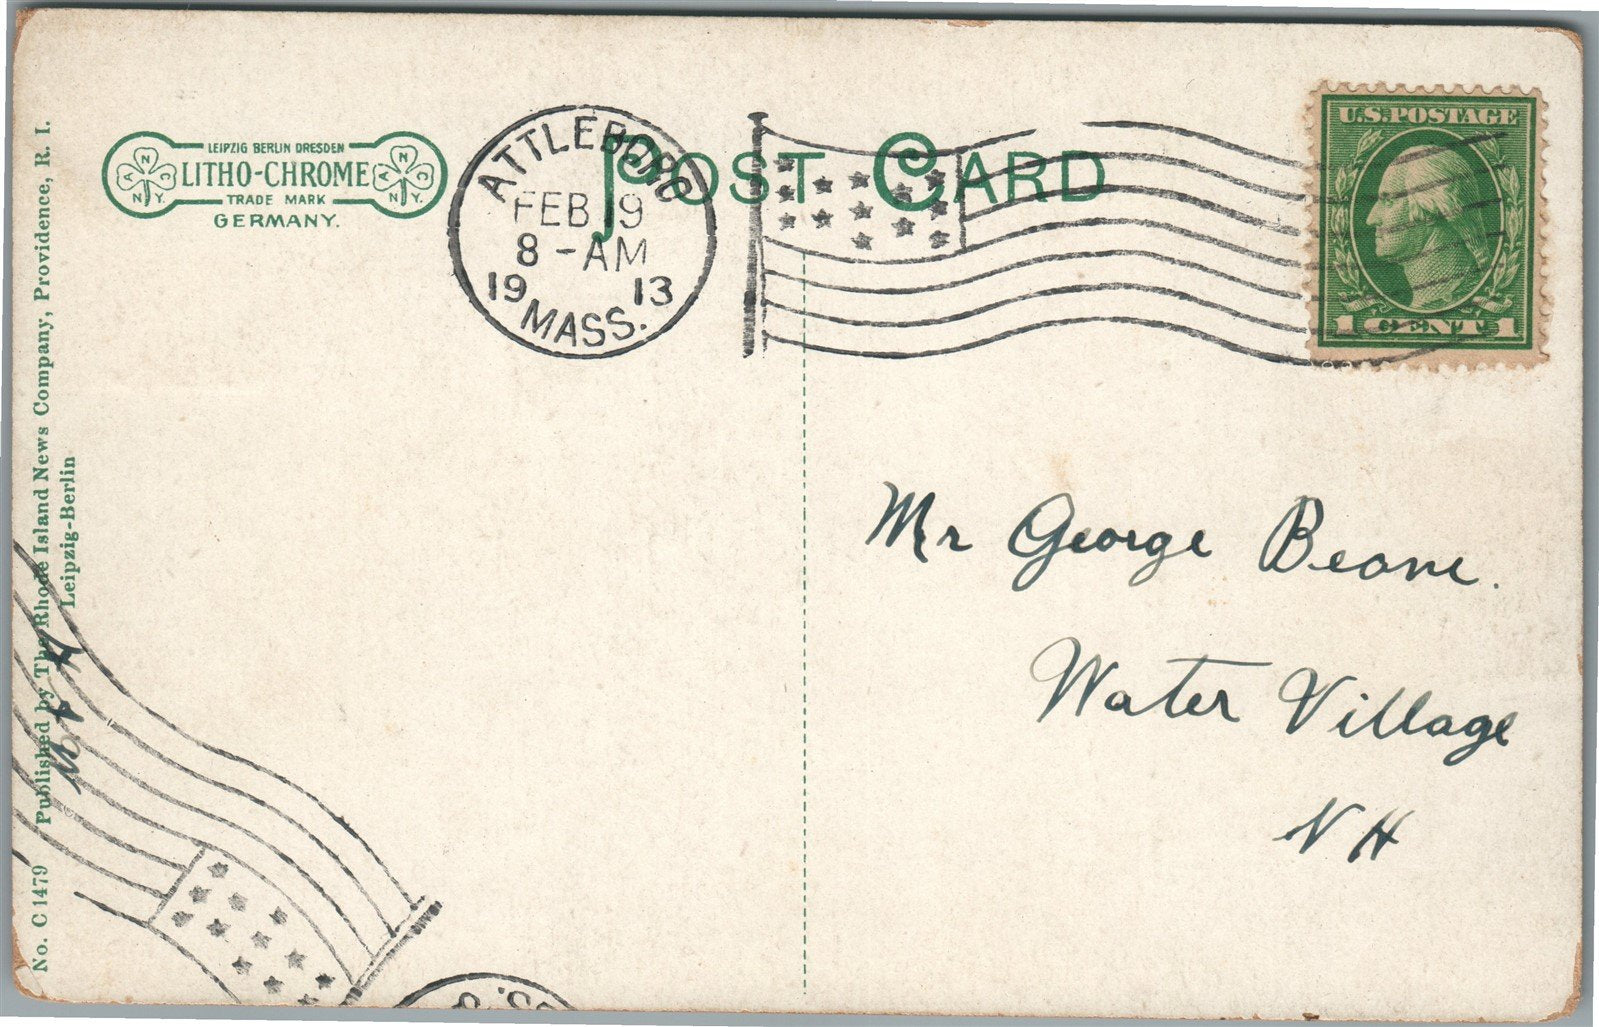 LEIPZIG BERLIN DRESDEN
LITHO-CHROME
TRADE MARK
GERMANY.
A N C N.Y.
A N C N.Y.
POST CARD
ATTLEBORO
FEB 19
8 - AM
19 13
MASS.
U.S. POSTAGE
1 CENT 1
Mr George Beane.
Water Village
N H
No. C 1479 Published by The Rhode Island News Company, Providence, R. I.
Leipzig-Berlin